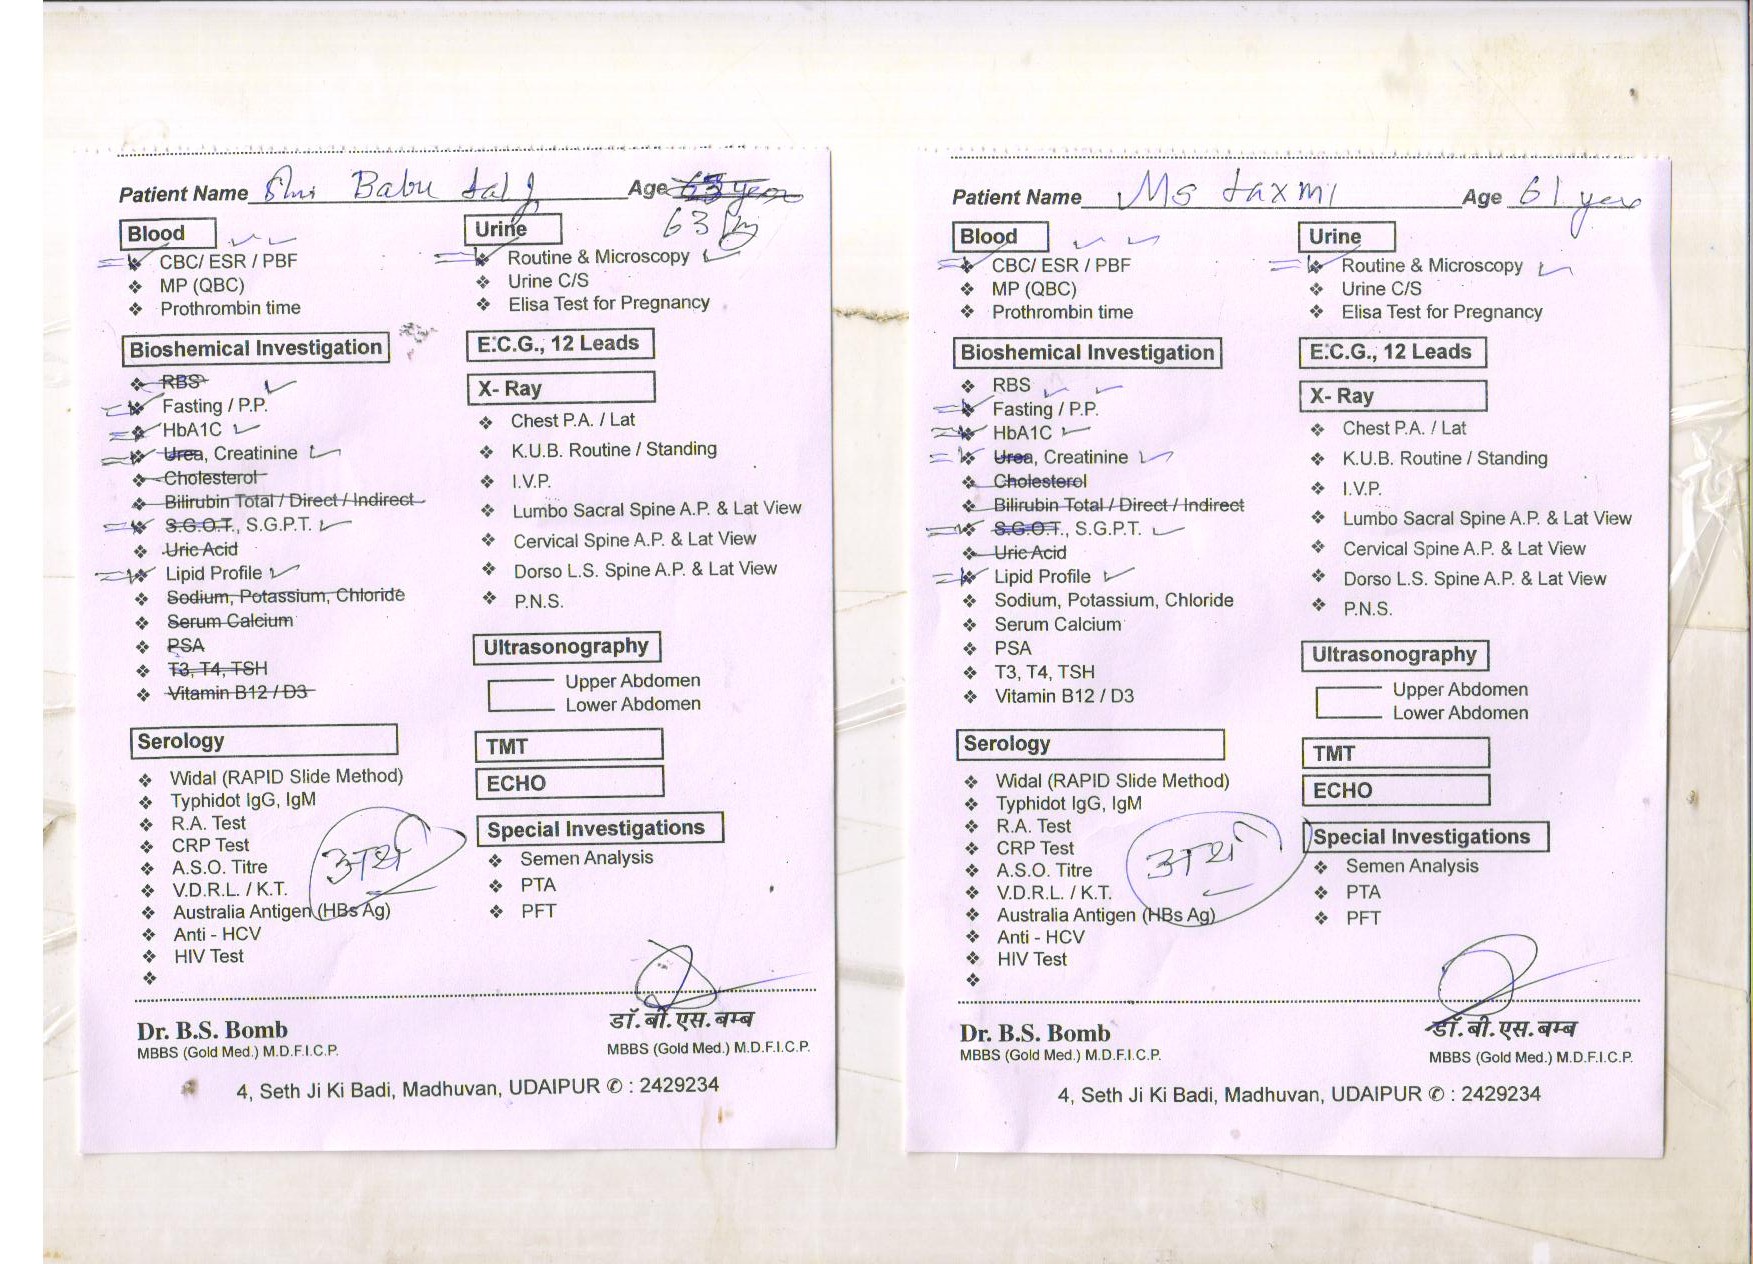 Patient Name Shri Babu Lal J Age 63 year
63 yr
Blood
CBC/ ESR / PBF
MP (QBC)
Prothrombin time
Bioshemical Investigation
RBS
Fasting / P.P.
HbA1C
Urea, Creatinine
Cholesterol
Bilirubin Total / Direct / Indirect
S.G.O.T., S.G.P.T.
Uric Acid
Lipid Profile
Sodium, Potassium, Chloride
Serum Calcium
PSA
T3, T4, TSH
Vitamin B12 / D3
Serology
Widal (RAPID Slide Method)
Typhidot IgG, IgM
R.A. Test
CRP Test
A.S.O. Titre
V.D.R.L. / K.T.
Australia Antigen (HBs Ag)
Anti - HCV
HIV Test
Urine
Routine & Microscopy
Urine C/S
Elisa Test for Pregnancy
E.C.G., 12 Leads
X- Ray
Chest P.A. / Lat
K.U.B. Routine / Standing
I.V.P.
Lumbo Sacral Spine A.P. & Lat View
Cervical Spine A.P. & Lat View
Dorso L.S. Spine A.P. & Lat View
P.N.S.
Ultrasonography
Upper Abdomen
Lower Abdomen
TMT
ECHO
Special Investigations
Semen Analysis
PTA
PFT
Dr. B.S. Bomb
MBBS (Gold Med.) M.D.F.I.C.P.
डॉ. बी. एस. बम्ब
MBBS (Gold Med.) M.D.F.I.C.P.
4, Seth Ji Ki Badi, Madhuvan, UDAIPUR ✆ : 2429234
Patient Name Ms Laxmi Age 61 year
Blood
CBC/ ESR / PBF
MP (QBC)
Prothrombin time
Bioshemical Investigation
RBS
Fasting / P.P.
HbA1C
Urea, Creatinine
Cholesterol
Bilirubin Total / Direct / Indirect
S.G.O.T., S.G.P.T.
Uric Acid
Lipid Profile
Sodium, Potassium, Chloride
Serum Calcium
PSA
T3, T4, TSH
Vitamin B12 / D3
Serology
Widal (RAPID Slide Method)
Typhidot IgG, IgM
R.A. Test
CRP Test
A.S.O. Titre
V.D.R.L. / K.T.
Australia Antigen (HBs Ag)
Anti - HCV
HIV Test
Urine
Routine & Microscopy
Urine C/S
Elisa Test for Pregnancy
E.C.G., 12 Leads
X- Ray
Chest P.A. / Lat
K.U.B. Routine / Standing
I.V.P.
Lumbo Sacral Spine A.P. & Lat View
Cervical Spine A.P. & Lat View
Dorso L.S. Spine A.P. & Lat View
P.N.S.
Ultrasonography
Upper Abdomen
Lower Abdomen
TMT
ECHO
Special Investigations
Semen Analysis
PTA
PFT
Dr. B.S. Bomb
MBBS (Gold Med.) M.D.F.I.C.P.
डॉ. बी. एस. बम्ब
MBBS (Gold Med.) M.D.F.I.C.P.
4, Seth Ji Ki Badi, Madhuvan, UDAIPUR ✆ : 2429234